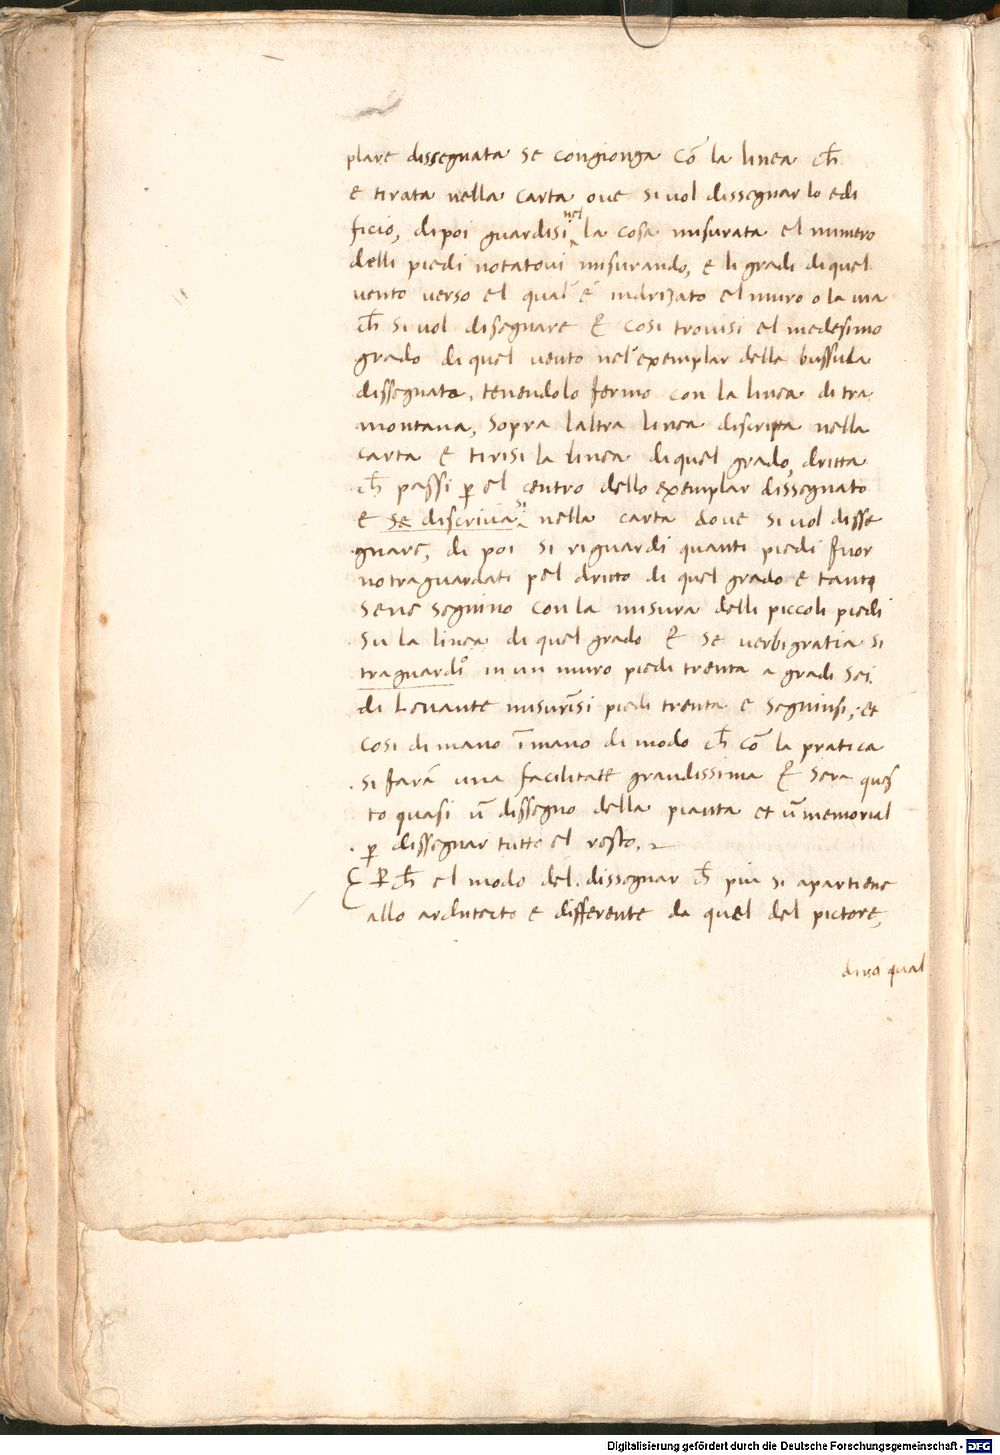 plare dissegnata se congionga cō la linea ch̄
e tirata nella carta ove si vol dissegnar lo edi
ficio, di poi guardisi nel la cosa misurata el numero
delli piedi notatovi misurando, e li gradi di quel
vento verso el qual' e' indrizato el muro o la via
ch̄ si vol disegnare & cosi trovisi el medesimo
grado di quel vento nel'exemplar della bussula
dissegnata, tenendolo fermo con la linea di tra
montana, sopra laltra linea discripta nella
carta e tirisi la linea di quel grado, dritta
ch̄ passi ꝑ el centro dello exemplar dissegnato
e se discriva si nella carta dove si vol disse
gnare, di poi si riguardi quanti piedi fuor
no traguardati pel dritto di quel grado e tanti
sene segnino con la misura delli piccoli piedi
su la linea di quel grado & se verbigratia si
traguardo in un muro piedi trenta a gradi sei
di Levante misurisi piedi trenta e segninsi, et
cosi di mano ī mano di modo ch̄ cō la pratica
si farà una facilitate grandissima & sera ques
to quasi ū dissegno della pianta et ū memorial
ꝑ dissegnar tutto el resto.
ꝑch̄ el modo del dissegnar ch̄ più si apartiene
allo architecto e differente da quel del pictore,
diro qual
Digitalisierung gefördert durch die Deutsche Forschungsgemeinschaft - DFG